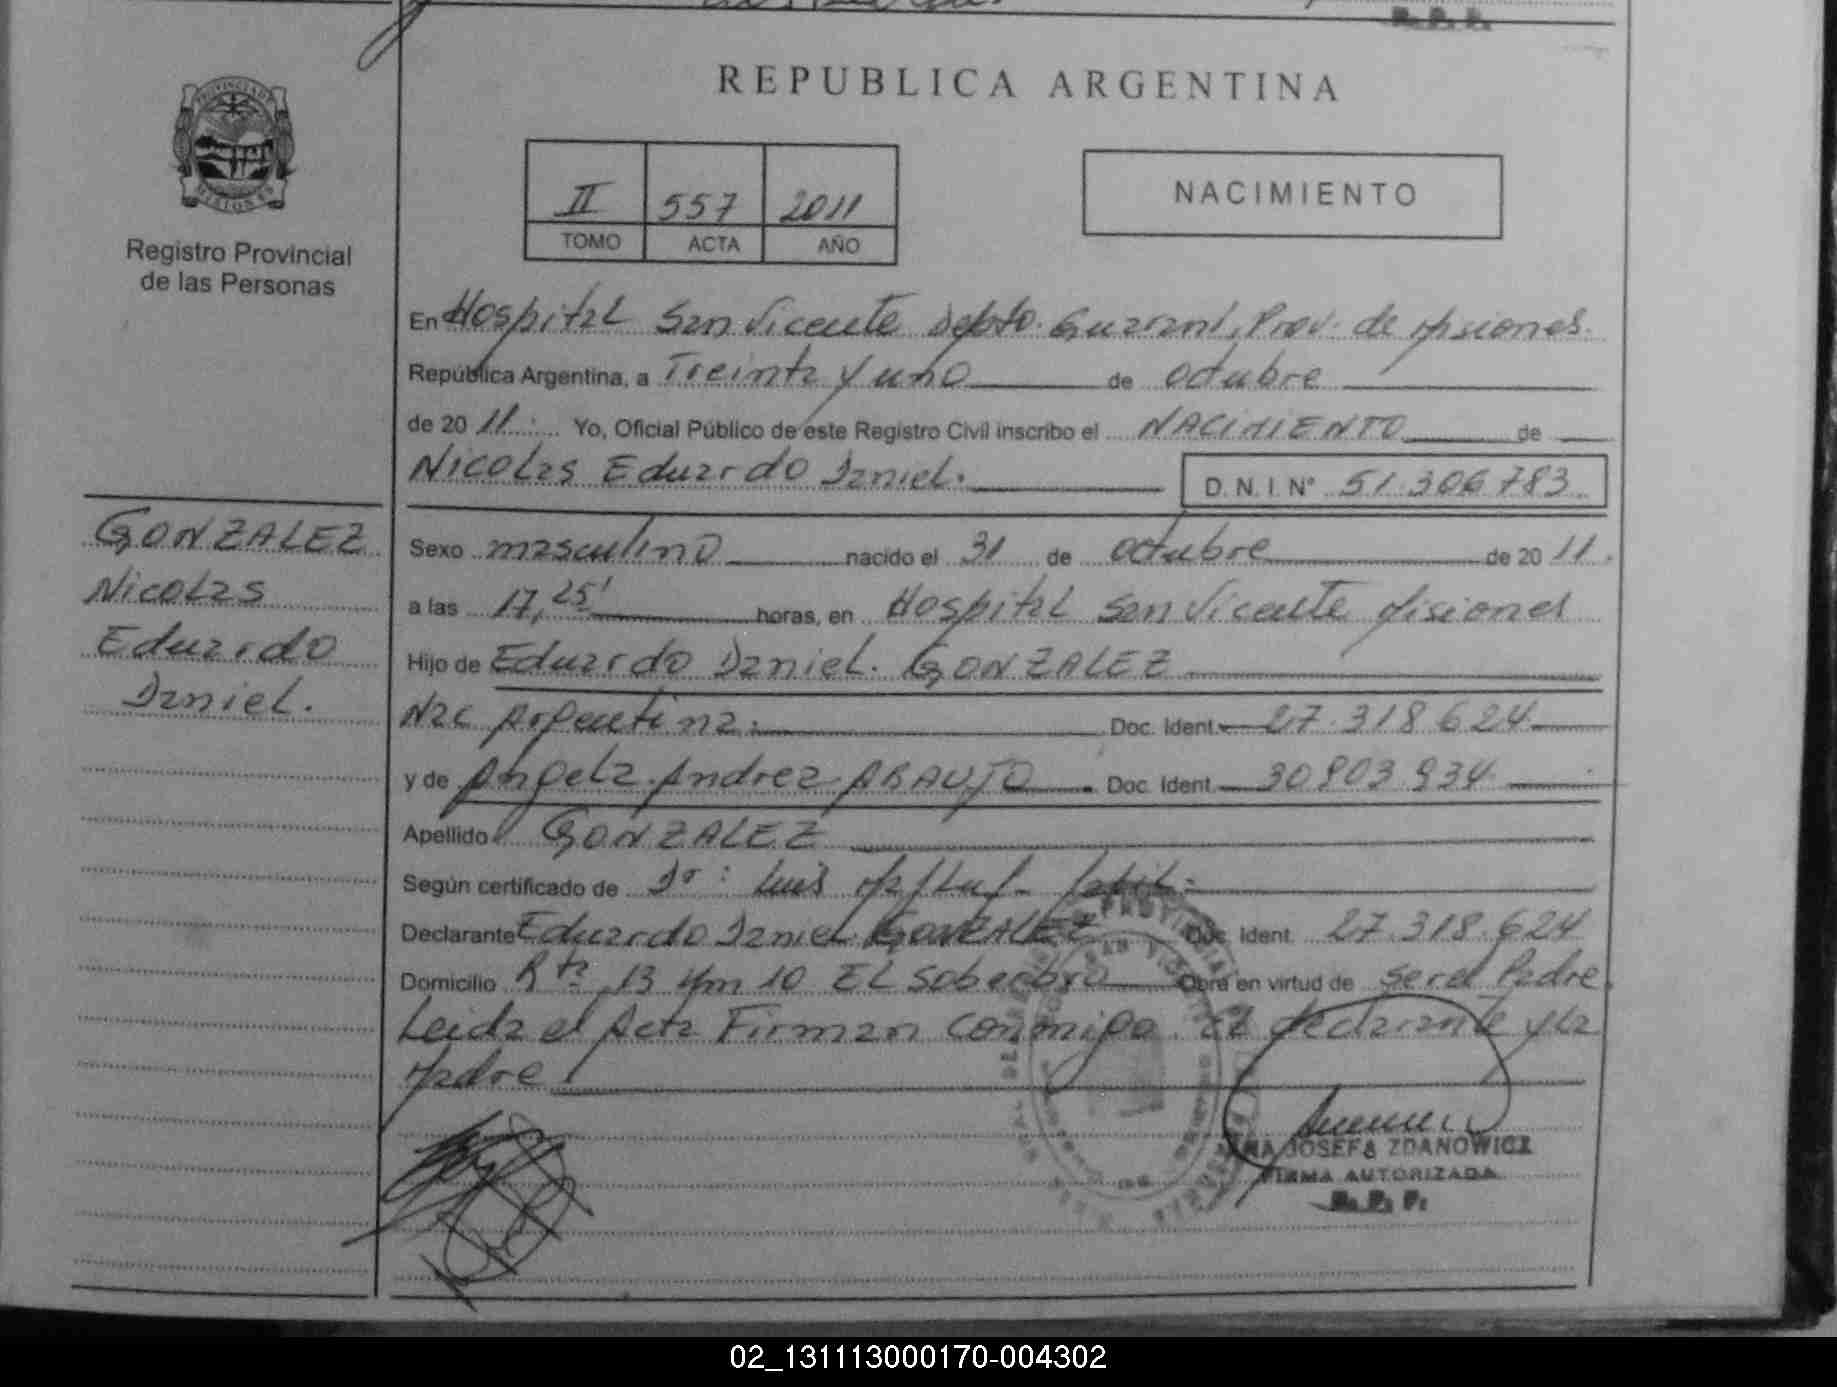 REPUBLICA ARGENTINA
PROVINCIA DE MISIONES
Registro Provincial
de las Personas
II 557 2011
TOMO ACTA AÑO
NACIMIENTO
En Hospital San Vicente Depto. Guaraní, Prov. de Misiones.
República Argentina, a Treinta y uno de octubre
de 2011. Yo, Oficial Público de este Registro Civil inscribo el NACIMIENTO de
Nicolas Eduardo Daniel. D.N.I. Nº 51.306783.
GONZALEZ
Nicolas
Eduardo
Daniel.
Sexo masculino nacido el 31 de octubre de 2011.
a las 17,25' horas, en Hospital San Vicente Misiones
Hijo de Eduardo Daniel. GONZALEZ
Nac Argentina. Doc. Ident. 27.318.624
y de Angela Andrea ARAUJO. Doc. Ident. 30903934
Apellido GONZALEZ
Según certificado de Dr: Luis
Declarante Eduardo Daniel GONZALEZ Doc. Ident. 27.318.624
Domicilio Rta 13 Km 10 EL Soberbio Obra en virtud de ser el Padre.
Leida el Acta Firman conmigo. El declarante y la
Madre
ANA JOSEFA ZDANOWICZ
FIRMA AUTORIZADA
R. P. P.
02_131113000170-004302